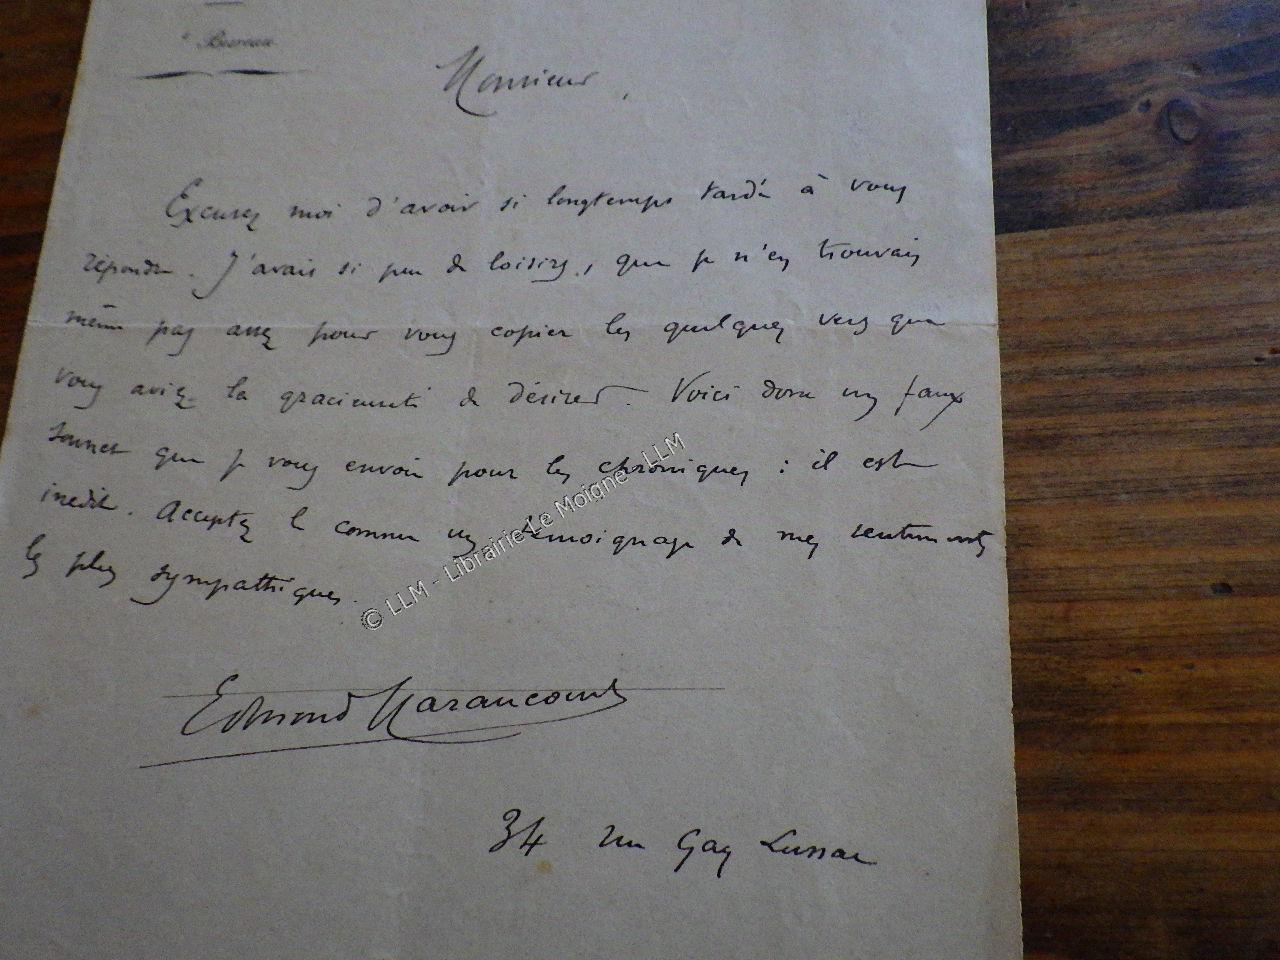 Bureau
Monsieur,
Excusez moi d'avoir si longtemps tardé à vous
répondre. J'avais si peu de loisirs, que je n'en trouvais
même pas assez pour vous copier les quelques vers que
vous aviez la gracieuseté de désirer. Voici donc un faux
sonnet que je vous envoie pour les chroniques : il est
inédit. Acceptez le comme un témoignage de mes sentiments
les plus sympathiques.
© LLM - Librairie Le Moigne - LLM
Edmond Haraucourt
34 rue Gay Lussac